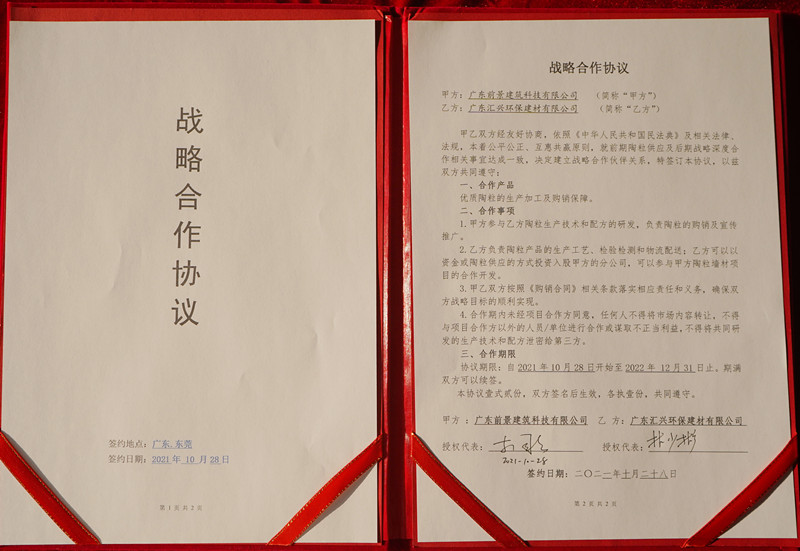 战略合作协议
签约地点：广东.东莞
签约日期：2021 年 10 月 28 日
第 1 页 共 2 页
战略合作协议
甲方：广东前景建筑科技有限公司 （简称“甲方”）
乙方：广东汇兴环保建材有限公司 （简称“乙方”）
甲乙双方经友好协商，依照《中华人民共和国民法典》及相关法律、
法规，本着公平公正、互惠共赢原则，就前期陶粒供应及后期战略深度合
作相关事宜达成一致，决定建立战略合作伙伴关系，特签订本协议，以兹
双方共同遵守：
一、合作产品
优质陶粒的生产加工及购销保障。
二、合作事项
1.甲方参与乙方陶粒生产技术和配方的研发，负责陶粒的购销及宣传
推广。
2.乙方负责陶粒产品的生产工艺、检验检测和物流配送；乙方可以以
资金或陶粒供应的方式投资入股甲方的分公司，可以参与甲方陶粒墙材项
目的合作开发。
3.甲乙双方按照《购销合同》相关条款落实相应责任和义务，确保双
方战略目标的顺利实现。
4.合作期内未经项目合作方同意，任何人不得将市场内容转让，不得
与项目合作方以外的人员/单位进行合作或谋取不正当利益，不得将共同研
发的生产技术和配方泄密给第三方。
三、合作期限
协议期限：自 2021 年 10 月 28 日开始至 2022 年 12 月 31 日止。期满
双方可以续签。
本协议壹式贰份，双方签名后生效，各执壹份，共同遵守。
甲方：广东前景建筑科技有限公司 乙方：广东汇兴环保建材有限公司
授权代表： 授权代表：林少彬
2021-10-28
签约日期：二〇二一年十月二十八日
第 2 页 共 2 页